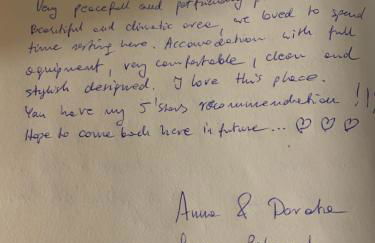 Very peacefull and petfriendly p
Beautiful and climatic area, we loved to spend
time resting here. Accomodation with full
equipment, very comfortable, clean and
stylish designed. I love this place.
You have my 5'stars recommendation !!!
Hope to come back here in future... ♡ ♡ ♡
Anna & Dorota